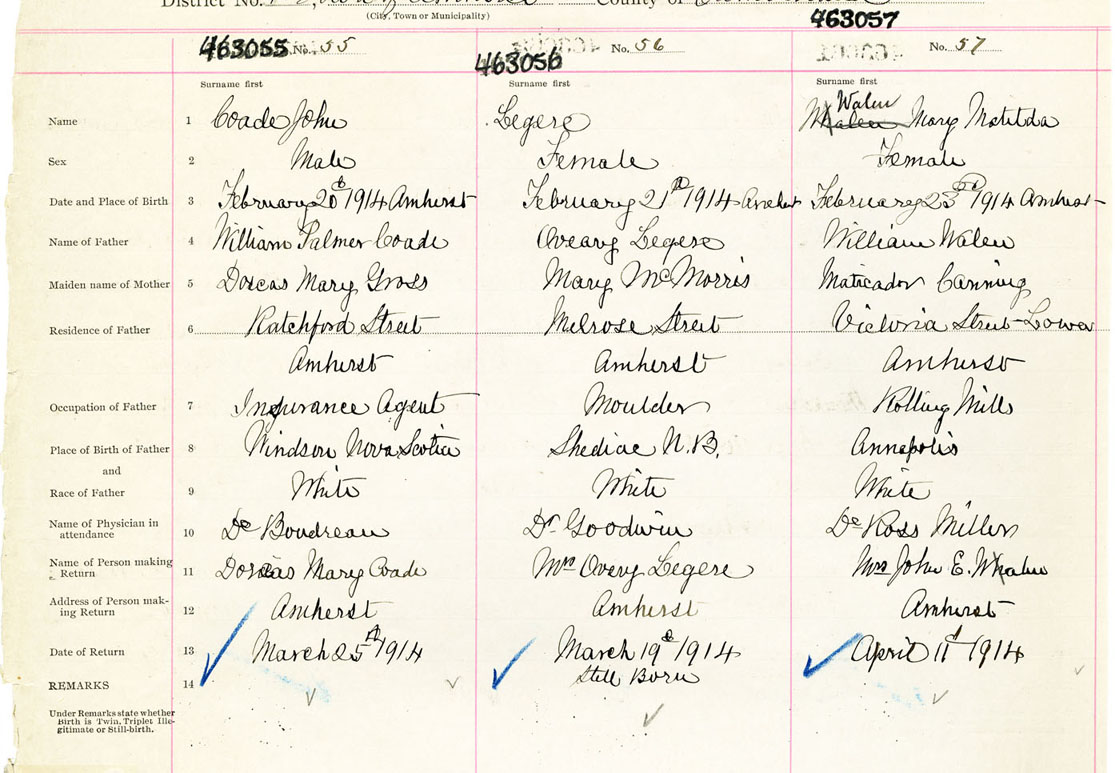 District No.
County of
(City, Town or Municipality)
463055 No. 55
463056 No. 56
463057 No. 57
Surname first Surname first Surname first
Name 1 Coade John Legere Walen Mary Matilda
Sex 2 Male Female Female
Date and Place of Birth 3 February 20th 1914 Amherst February 21st 1914 Amherst February 23rd 1914 Amherst
Name of Father 4 William Palmer Coade Ovearg Legere William Walen
Maiden name of Mother 5 Dorcas Mary Gross Mary McMorris Maticador Canning
Residence of Father 6 Ratchford Street Melrose Street Victoria Street Lower
Amherst Amherst Amherst
Occupation of Father 7 Insurance Agent Moulder Rolling Mills
Place of Birth of Father 8 Windsor Nova Scotia Shediac N.B. Annapolis
and
Race of Father 9 White White White
Name of Physician in
attendance 10 Dr Boudreau Dr Goodwin Dr Ross Miller
Name of Person making
Return 11 Dorcas Mary Coade Mrs Overy Legere Mrs John E. Whalen
Address of Person mak-
ing Return 12 Amherst Amherst Amherst
Date of Return 13 March 25th 1914 March 19th 1914 April 11th 1914
REMARKS 14 Still Born
Under Remarks state whether
Birth is Twin, Triplet Ille-
gitimate or Still-birth.